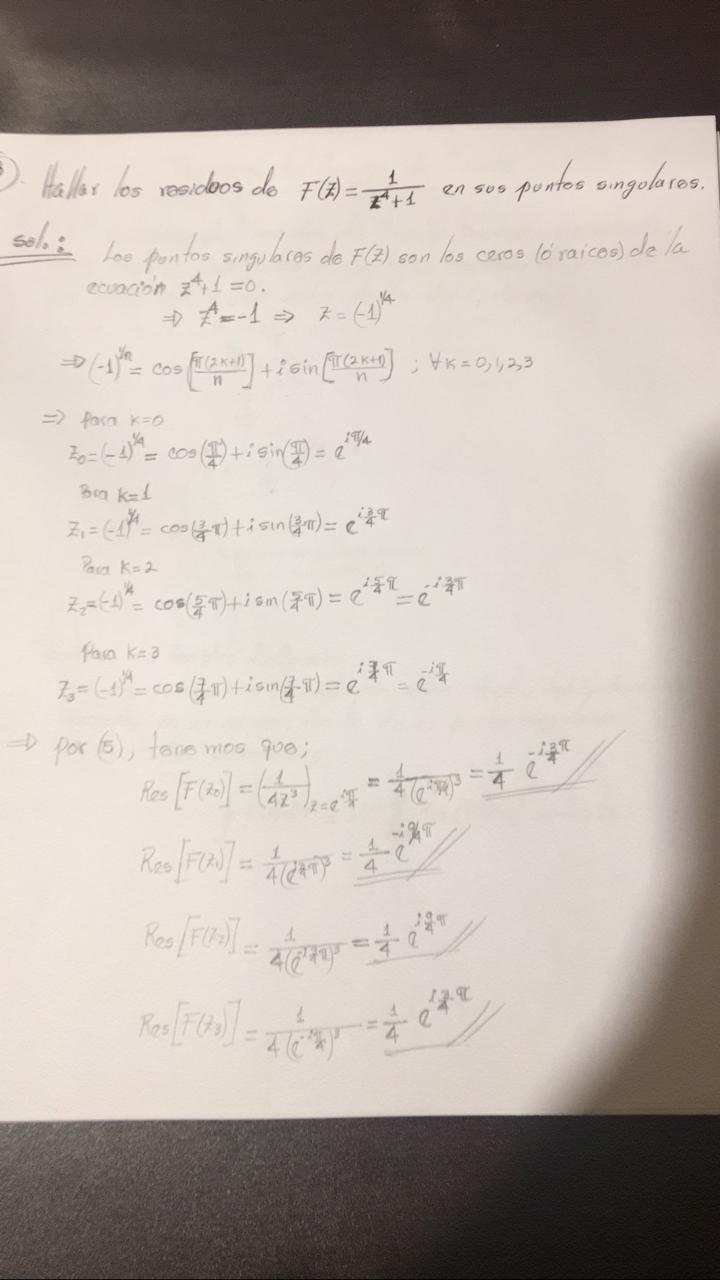 ). Hallar los residuos de F(z) = 1/(z⁴+1) en sus puntos singulares.
sol.: Los puntos singulares de F(z) son los ceros (ó raices) de la
ecuación z⁴+1 = 0.
⇒ z⁴ = -1 ⇒ z = (-1)^(1/4)
⇒ (-1)^(1/n) = cos[π(2k+1)/n] + i sin[π(2k+1)/n] ; ∀ k = 0,1,2,3
⇒ Para k=0
z₀ = (-1)^(1/4) = cos(π/4) + i sin(π/4) = e^(iπ/4)
Para k=1
z₁ = (-1)^(1/4) = cos(3/4 π) + i sin(3/4 π) = e^(i 3/4 π)
Para k=2
z₂ = (-1)^(1/4) = cos(5/4 π) + i sin(5/4 π) = e^(i 5/4 π) = e^(-i 3/4 π)
Para k=3
z₃ = (-1)^(1/4) = cos(7/4 π) + i sin(7/4 π) = e^(i 7/4 π) = e^(-i π/4)
⇒ por (5), tenemos que;
Res[F(z₀)] = (1/(4z³))_(z=e^(iπ/4)) = 1/(4(e^(iπ/4))³) = 1/4 e^(-i 3/4 π)
Res[F(z₁)] = 1/(4(e^(i 3/4 π))³) = 1/4 e^(-i 9/4 π)
Res[F(z₂)] = 1/(4(e^(-i 3/4 π))³) = 1/4 e^(i 9/4 π)
Res[F(z₃)] = 1/(4(e^(-i π/4))³) = 1/4 e^(i 3/4 π)